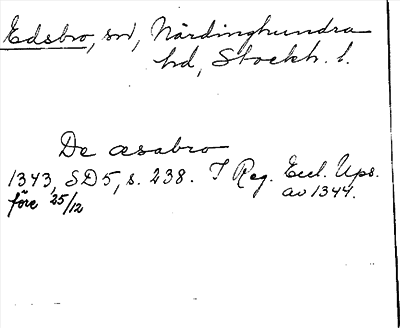 Edsbro, sn, Närdinghundra
hd, Stockh. l.
De æsabro
1343, SD5, s. 238. I Reg. Eccl. Ups.
före 25/12 av 1344.